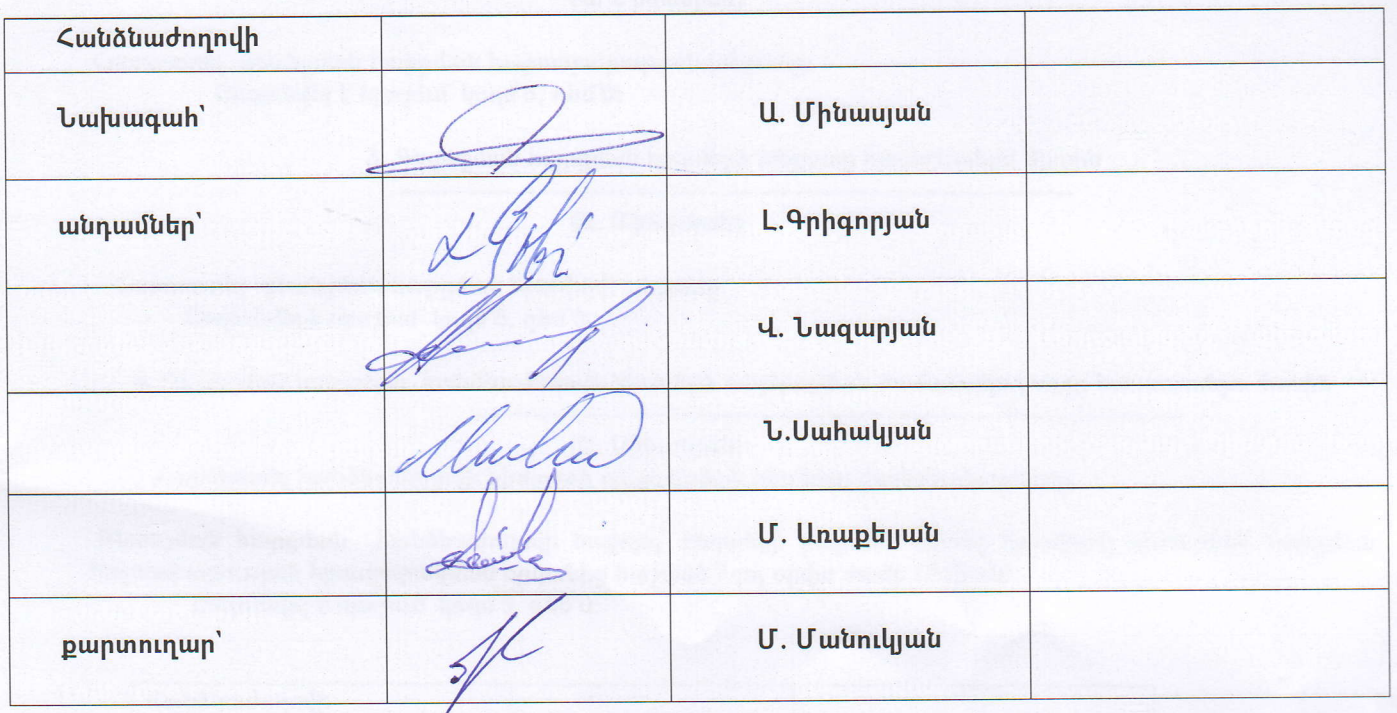 Հանձնաժողովի
Նախագահ՝ Ա. Մինասյան
անդամներ՝ Լ.Գրիգորյան
Վ. Նազարյան
Ն.Սահակյան
Մ. Առաքելյան
քարտուղար՝ Մ. Մանուկյան